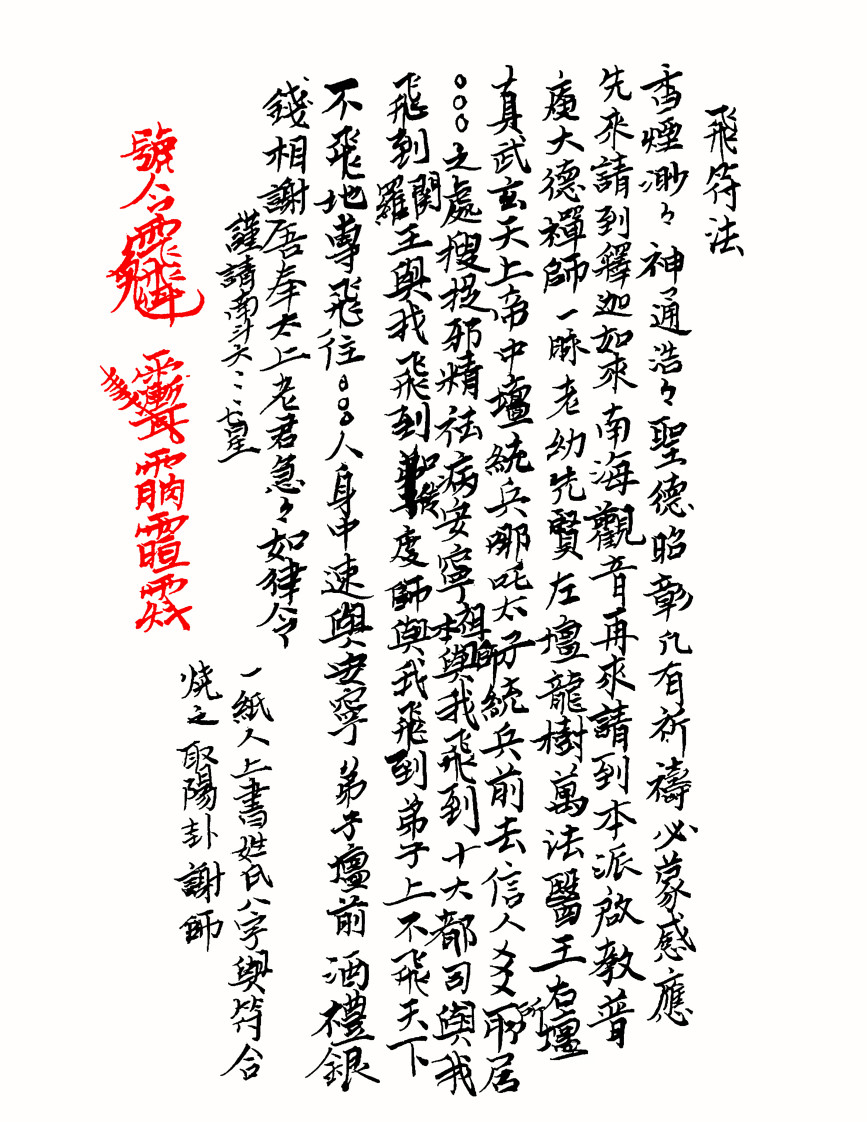 飛符法
香煙渺々神通浩々聖德昭彰凡有祈禱必蒙感應
先來請到釋迦如來南海觀音再來請到本派啟教普
庚大德禪師一脉老幼先賢左壇龍樹萬法醫王右壇
真武玄天上帝中壇統兵哪吒太子統兵前去信人㸚所居
○○○之處搜捉邪精祛病安寧祖師本與我飛到十大都司與我
飛到閭羅王與我飛到度師與我飛到弟子上不飛天下
不飛地專飛往○○○人身中速與安寧弟子壇前酒禮銀
錢相謝吾奉太上老君急々如律令
謹請南斗六：：七星
號令
一紙人上書姓氏八字與符合
燒之取陽卦謝師